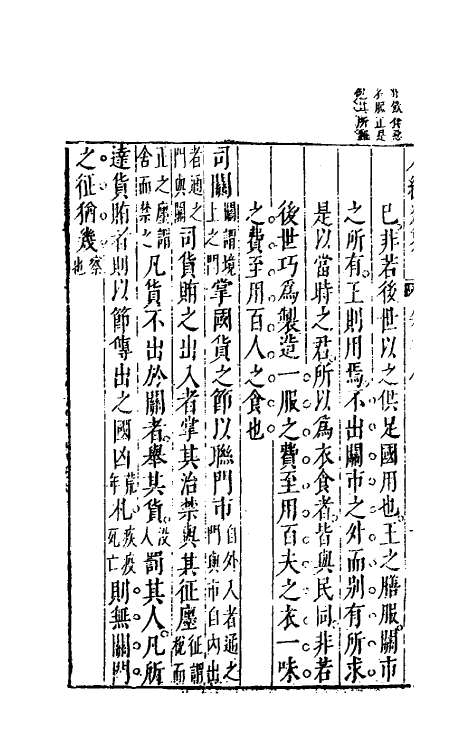 已非若後世以之供足國用也王之膳服關市
之所有王則用焉不出關市之外而别有所求
是以當時之君所以爲衣食者皆與民同非若
後世巧爲製造一服之費至用百夫之衣一味
之費至用百人之食也
司關關謂境上之門掌國貨之節以聯門市自外入者通之門與市自内出
者通之門與關司貨賄之出入者掌其治禁與其征廛征謂稅而
正之廛謂舍而禁之凡貨不出於關者舉其貨没人罰其人凡所
達貨賄者則以節傳出之國凶荒年札疾疫死亡則無關門
之征猶幾察也